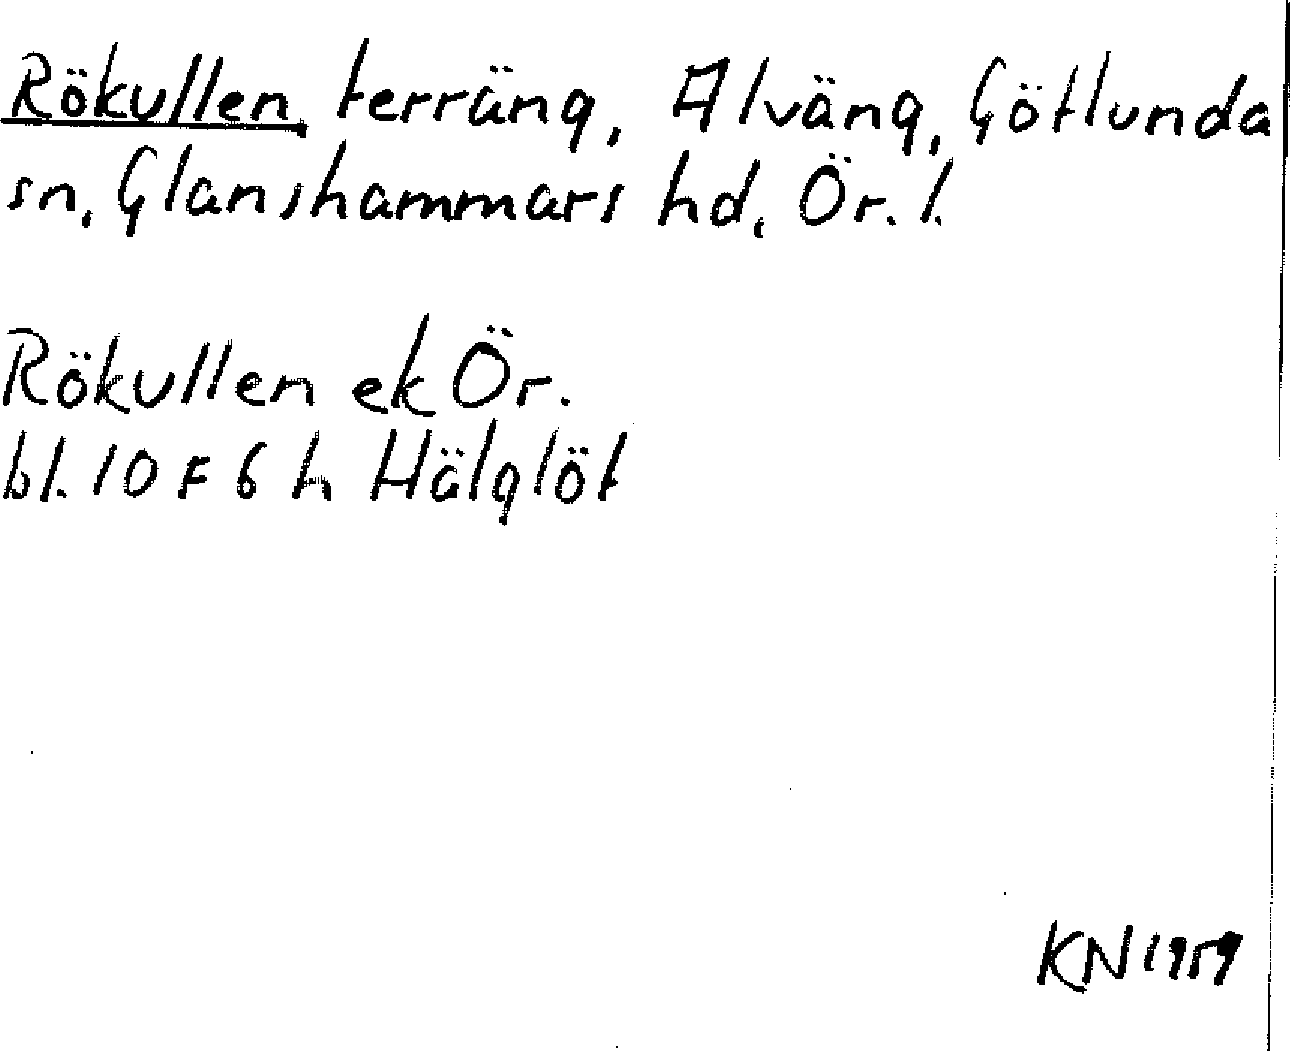 Rökullen, terräng, Alväng, Götlunda
sn, Glanshammars hd, Ör. l.
Rökullen ek Ör.
bl. 10 F 6 h Hälglöt
KN 1959